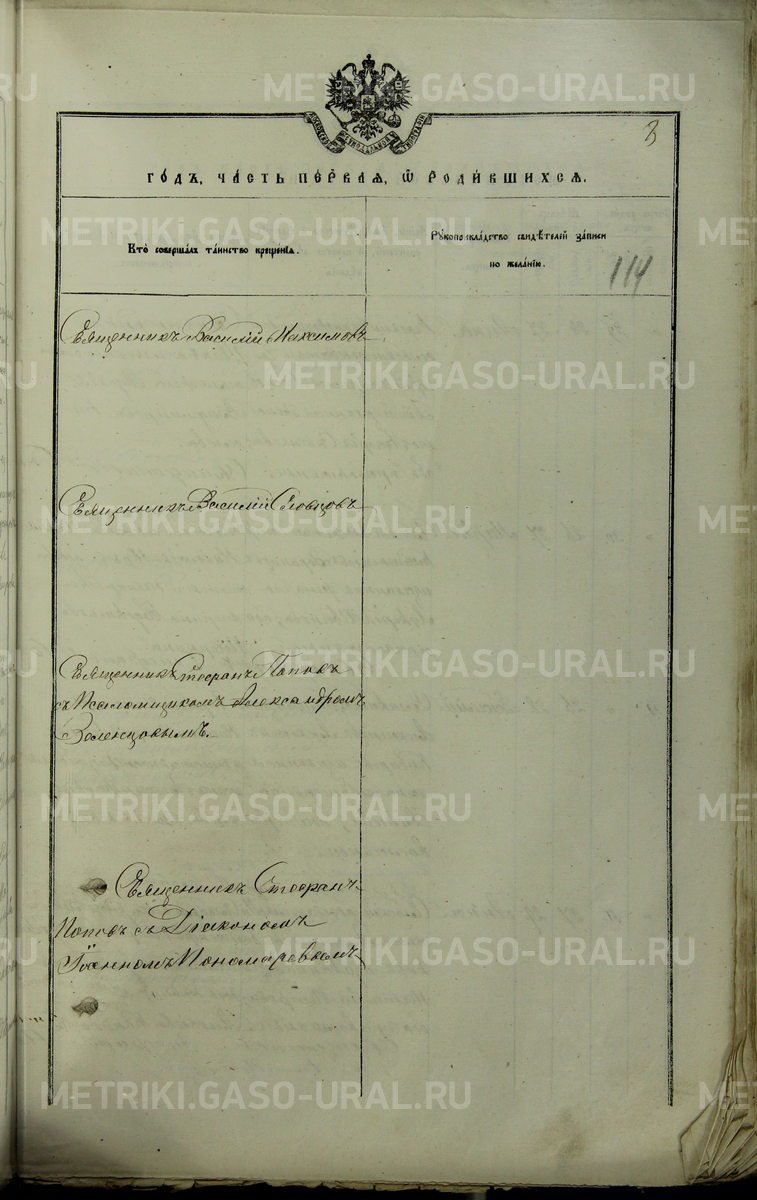 3
ГОДЪ, ЧАСТЬ ПЕРВАЯ, Ѿ РОДИВШИХСЯ.
Кто совершалъ таинство крещенія.
Рукоприкладство свидѣтелей записи
по желанію.
114
Священникъ Василій Максимовъ
Священникъ Василій Словцовъ
Священникъ Стефанъ Поповъ
съ Псаломщикомъ Александромъ
Священникъ Стефанъ
Поповъ съ Діакономъ
Іоанномъ Пономаревымъ
METRIKI.GASO-URAL.RU